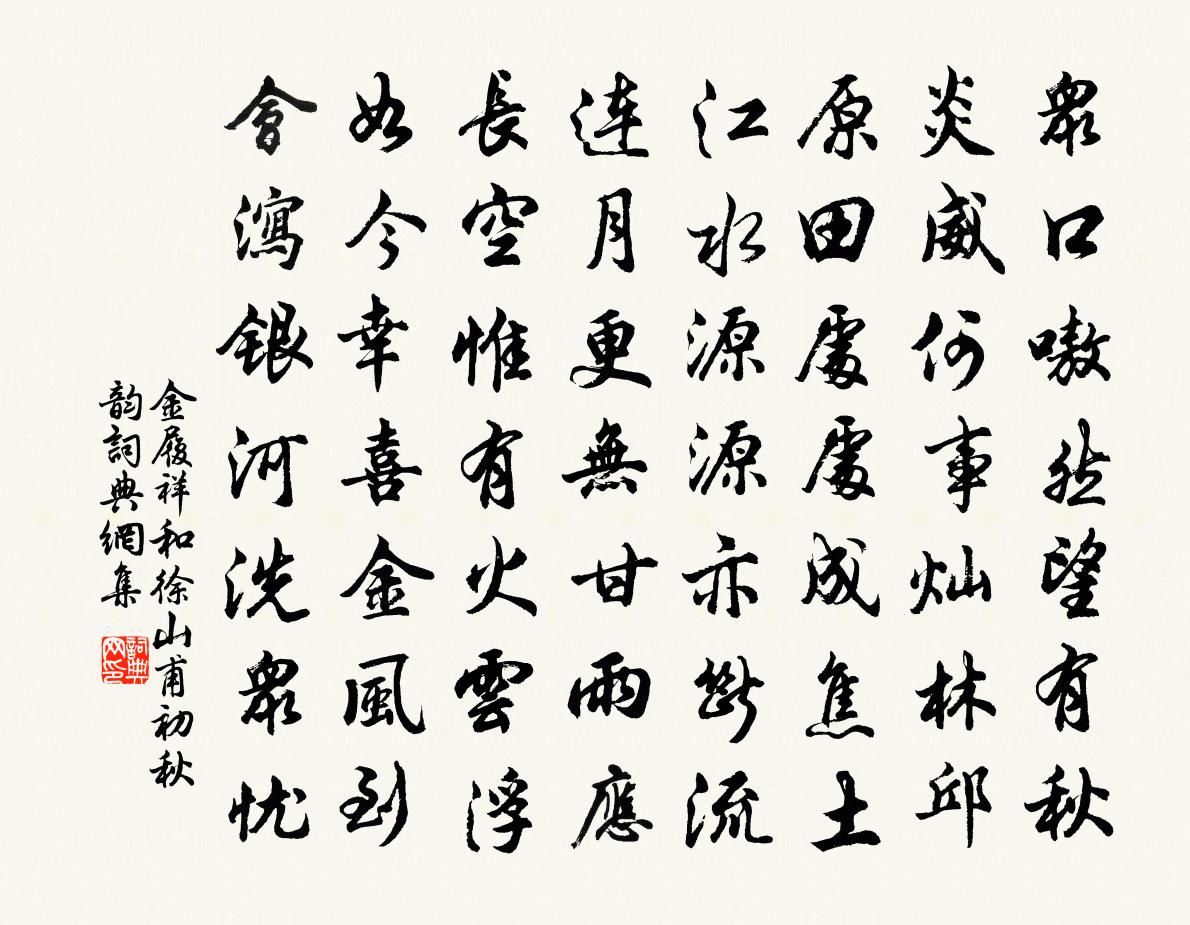 眾口嗷然望有秋
炎威何事灿林邱
原田處處成焦土
江水源源亦斷流
連月更無甘雨應
長空惟有火雲浮
如今幸喜金風到
會瀉銀河洗眾忧
金履祥和徐山甫初秋
韵詞典網集
詞典网印